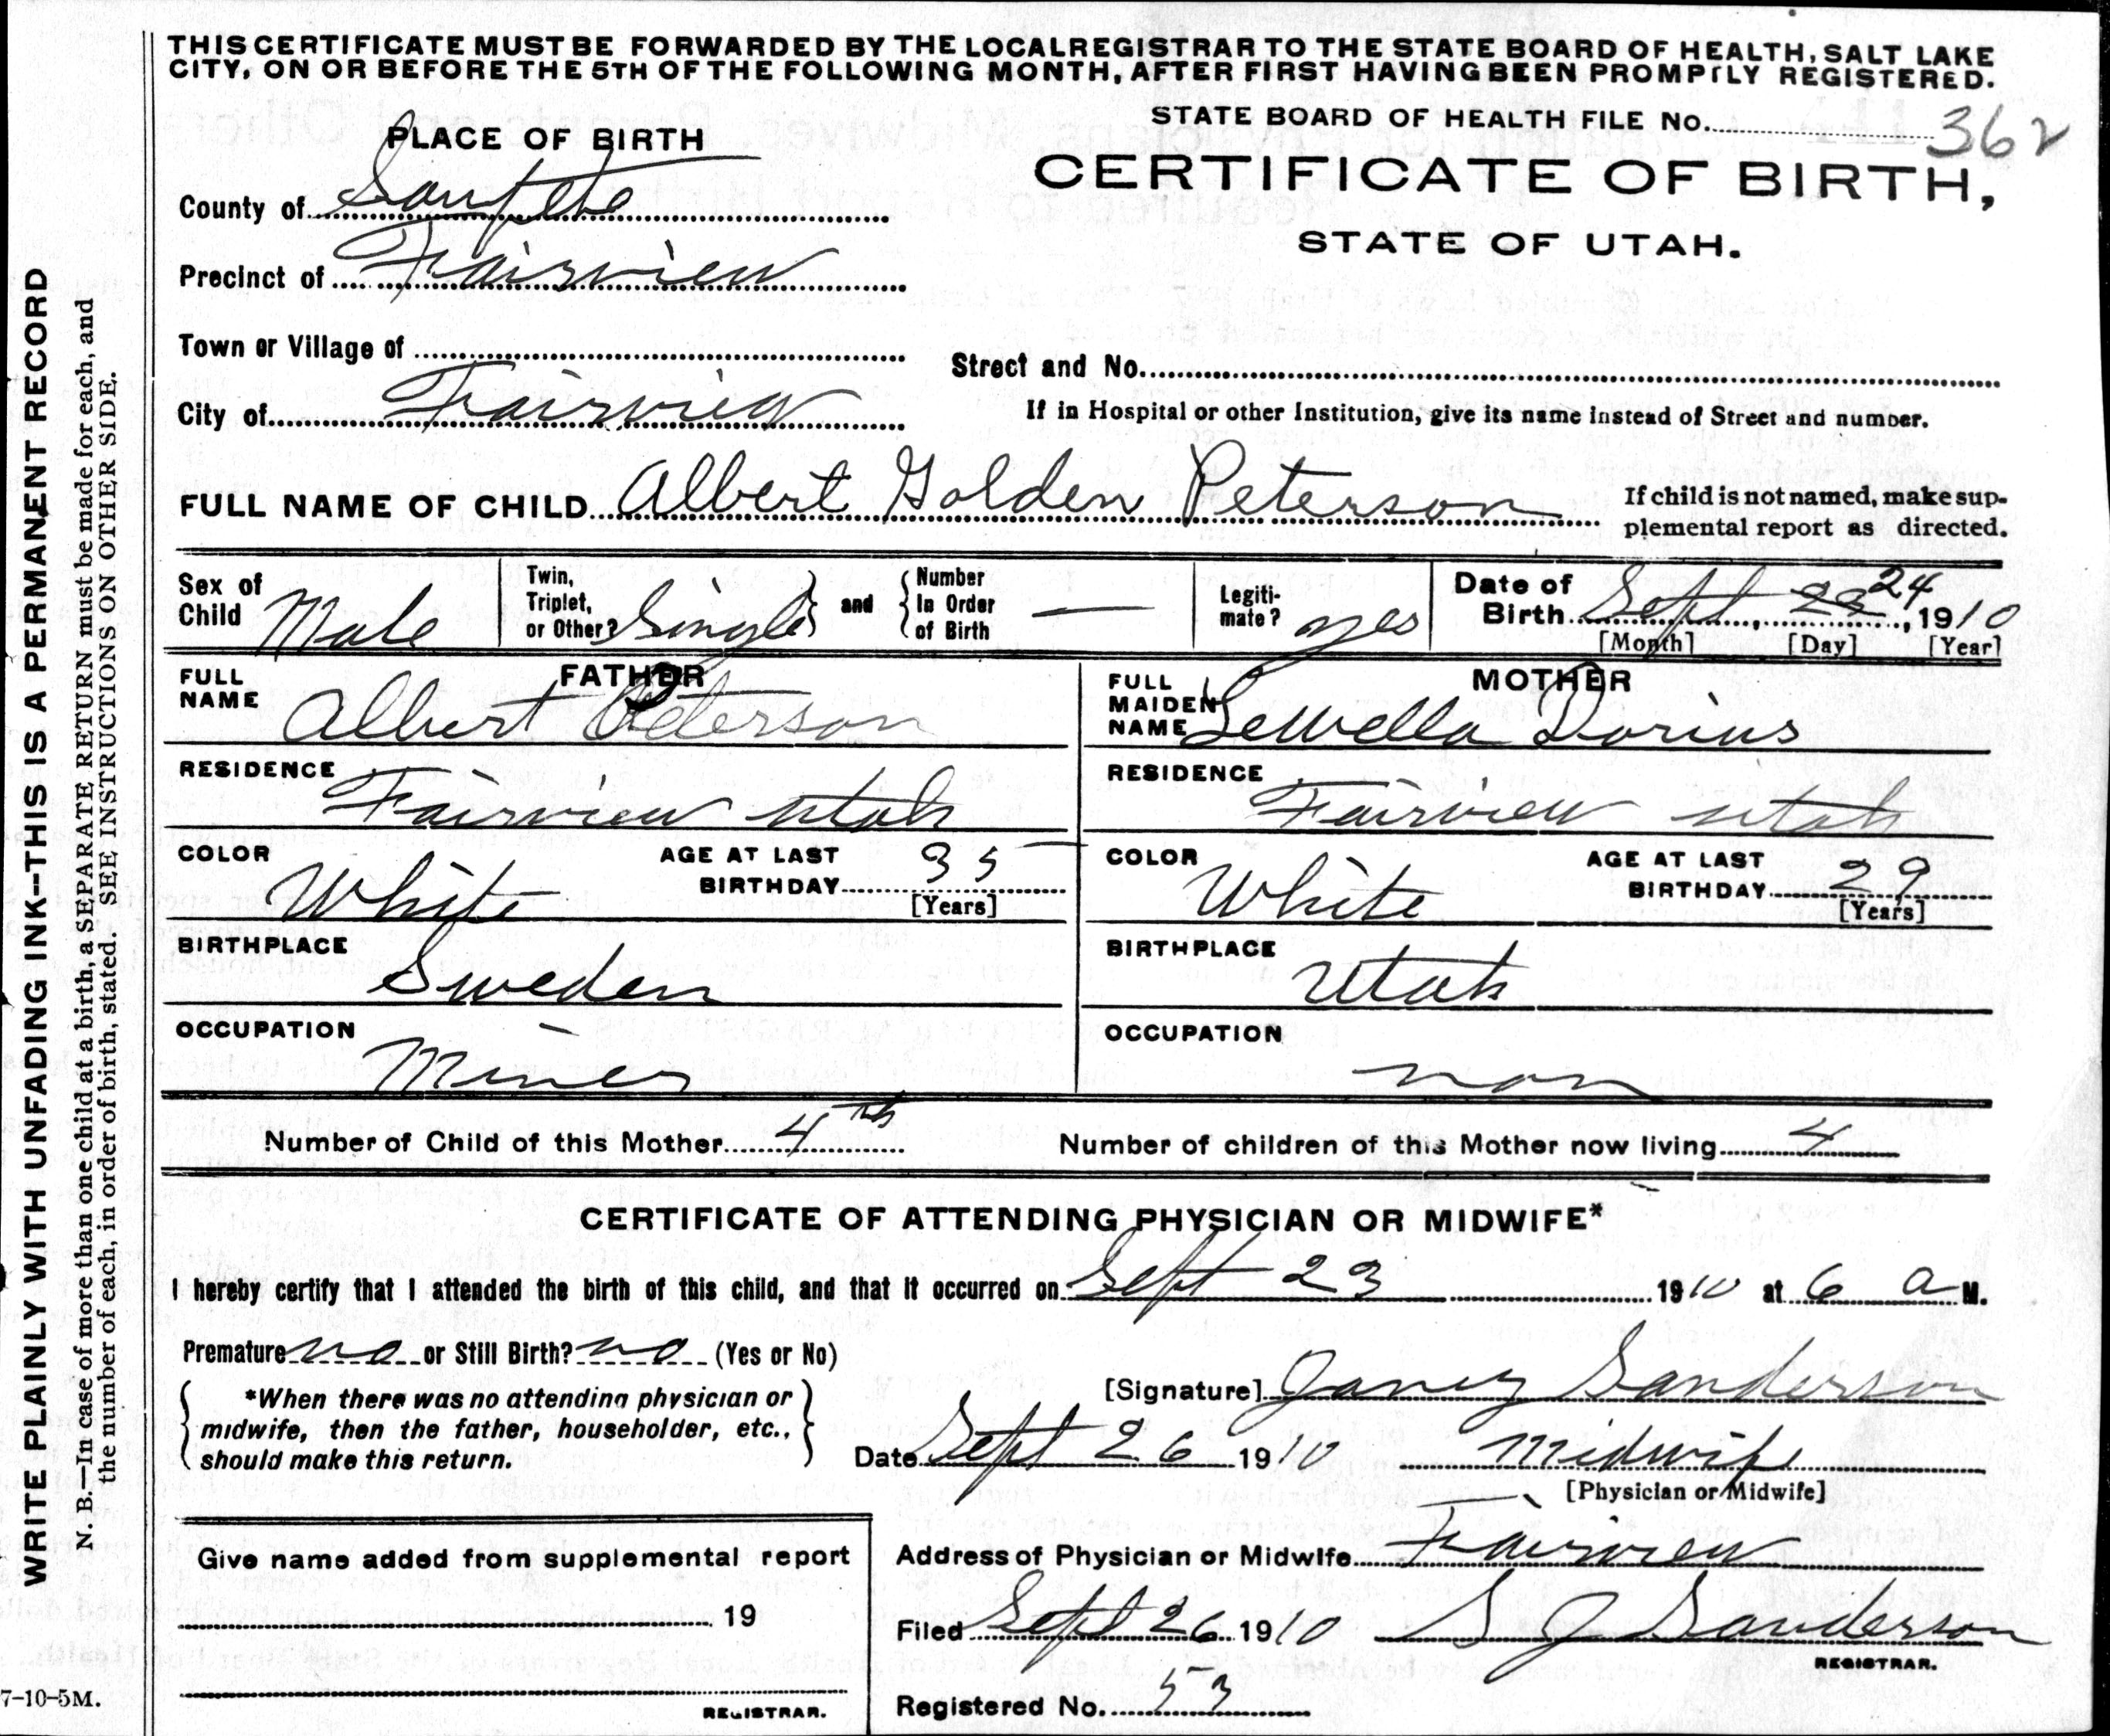 THIS CERTIFICATE MUST BE FORWARDED BY THE LOCAL REGISTRAR TO THE STATE BOARD OF HEALTH, SALT LAKE
CITY, ON OR BEFORE THE 5TH OF THE FOLLOWING MONTH, AFTER FIRST HAVING BEEN PROMPTLY REGISTERED.
STATE BOARD OF HEALTH FILE No. 362
PLACE OF BIRTH
CERTIFICATE OF BIRTH,
STATE OF UTAH.
County of Sanpete
Precinct of Fairview
Town or Village of
Street and No.
City of Fairview
If in Hospital or other Institution, give its name instead of Street and number.
FULL NAME OF CHILD Albert Golden Peterson
If child is not named, make sup-
plemental report as directed.
Sex of Child Male
Twin, Triplet, or Other? Single
and
Number In Order of Birth —
Legiti-mate? yes
Date of Birth Sept 23 24, 1910
[Month] [Day] [Year]
FATHER
FULL NAME Albert Peterson
RESIDENCE Fairview Utah
COLOR White
AGE AT LAST BIRTHDAY 35 [Years]
BIRTHPLACE Sweden
OCCUPATION Miner
MOTHER
FULL MAIDEN NAME Lewella Dorius
RESIDENCE Fairview Utah
COLOR White
AGE AT LAST BIRTHDAY 29 [Years]
BIRTHPLACE Utah
OCCUPATION non
Number of Child of this Mother 4th
Number of children of this Mother now living 4
CERTIFICATE OF ATTENDING PHYSICIAN OR MIDWIFE*
I hereby certify that I attended the birth of this child, and that it occurred on Sept 23 1910 at 6 a M.
Premature no or Still Birth? no (Yes or No)
*When there was no attending physician or
midwife, then the father, householder, etc.,
should make this return.
[Signature] Sanderson
Date Sept 26 1910 Midwife
[Physician or Midwife]
Address of Physician or Midwife Fairview
Filed Sept 26 1910 S J Sanderson
REGISTRAR.
Registered No. 53
Give name added from supplemental report
19
REGISTRAR.
WRITE PLAINLY WITH UNFADING INK--THIS IS A PERMANENT RECORD
N. B.—In case of more than one child at a birth, a SEPARATE RETURN must be made for each, and
the number of each, in order of birth, stated. SEE INSTRUCTIONS ON OTHER SIDE.
7-10-5M.